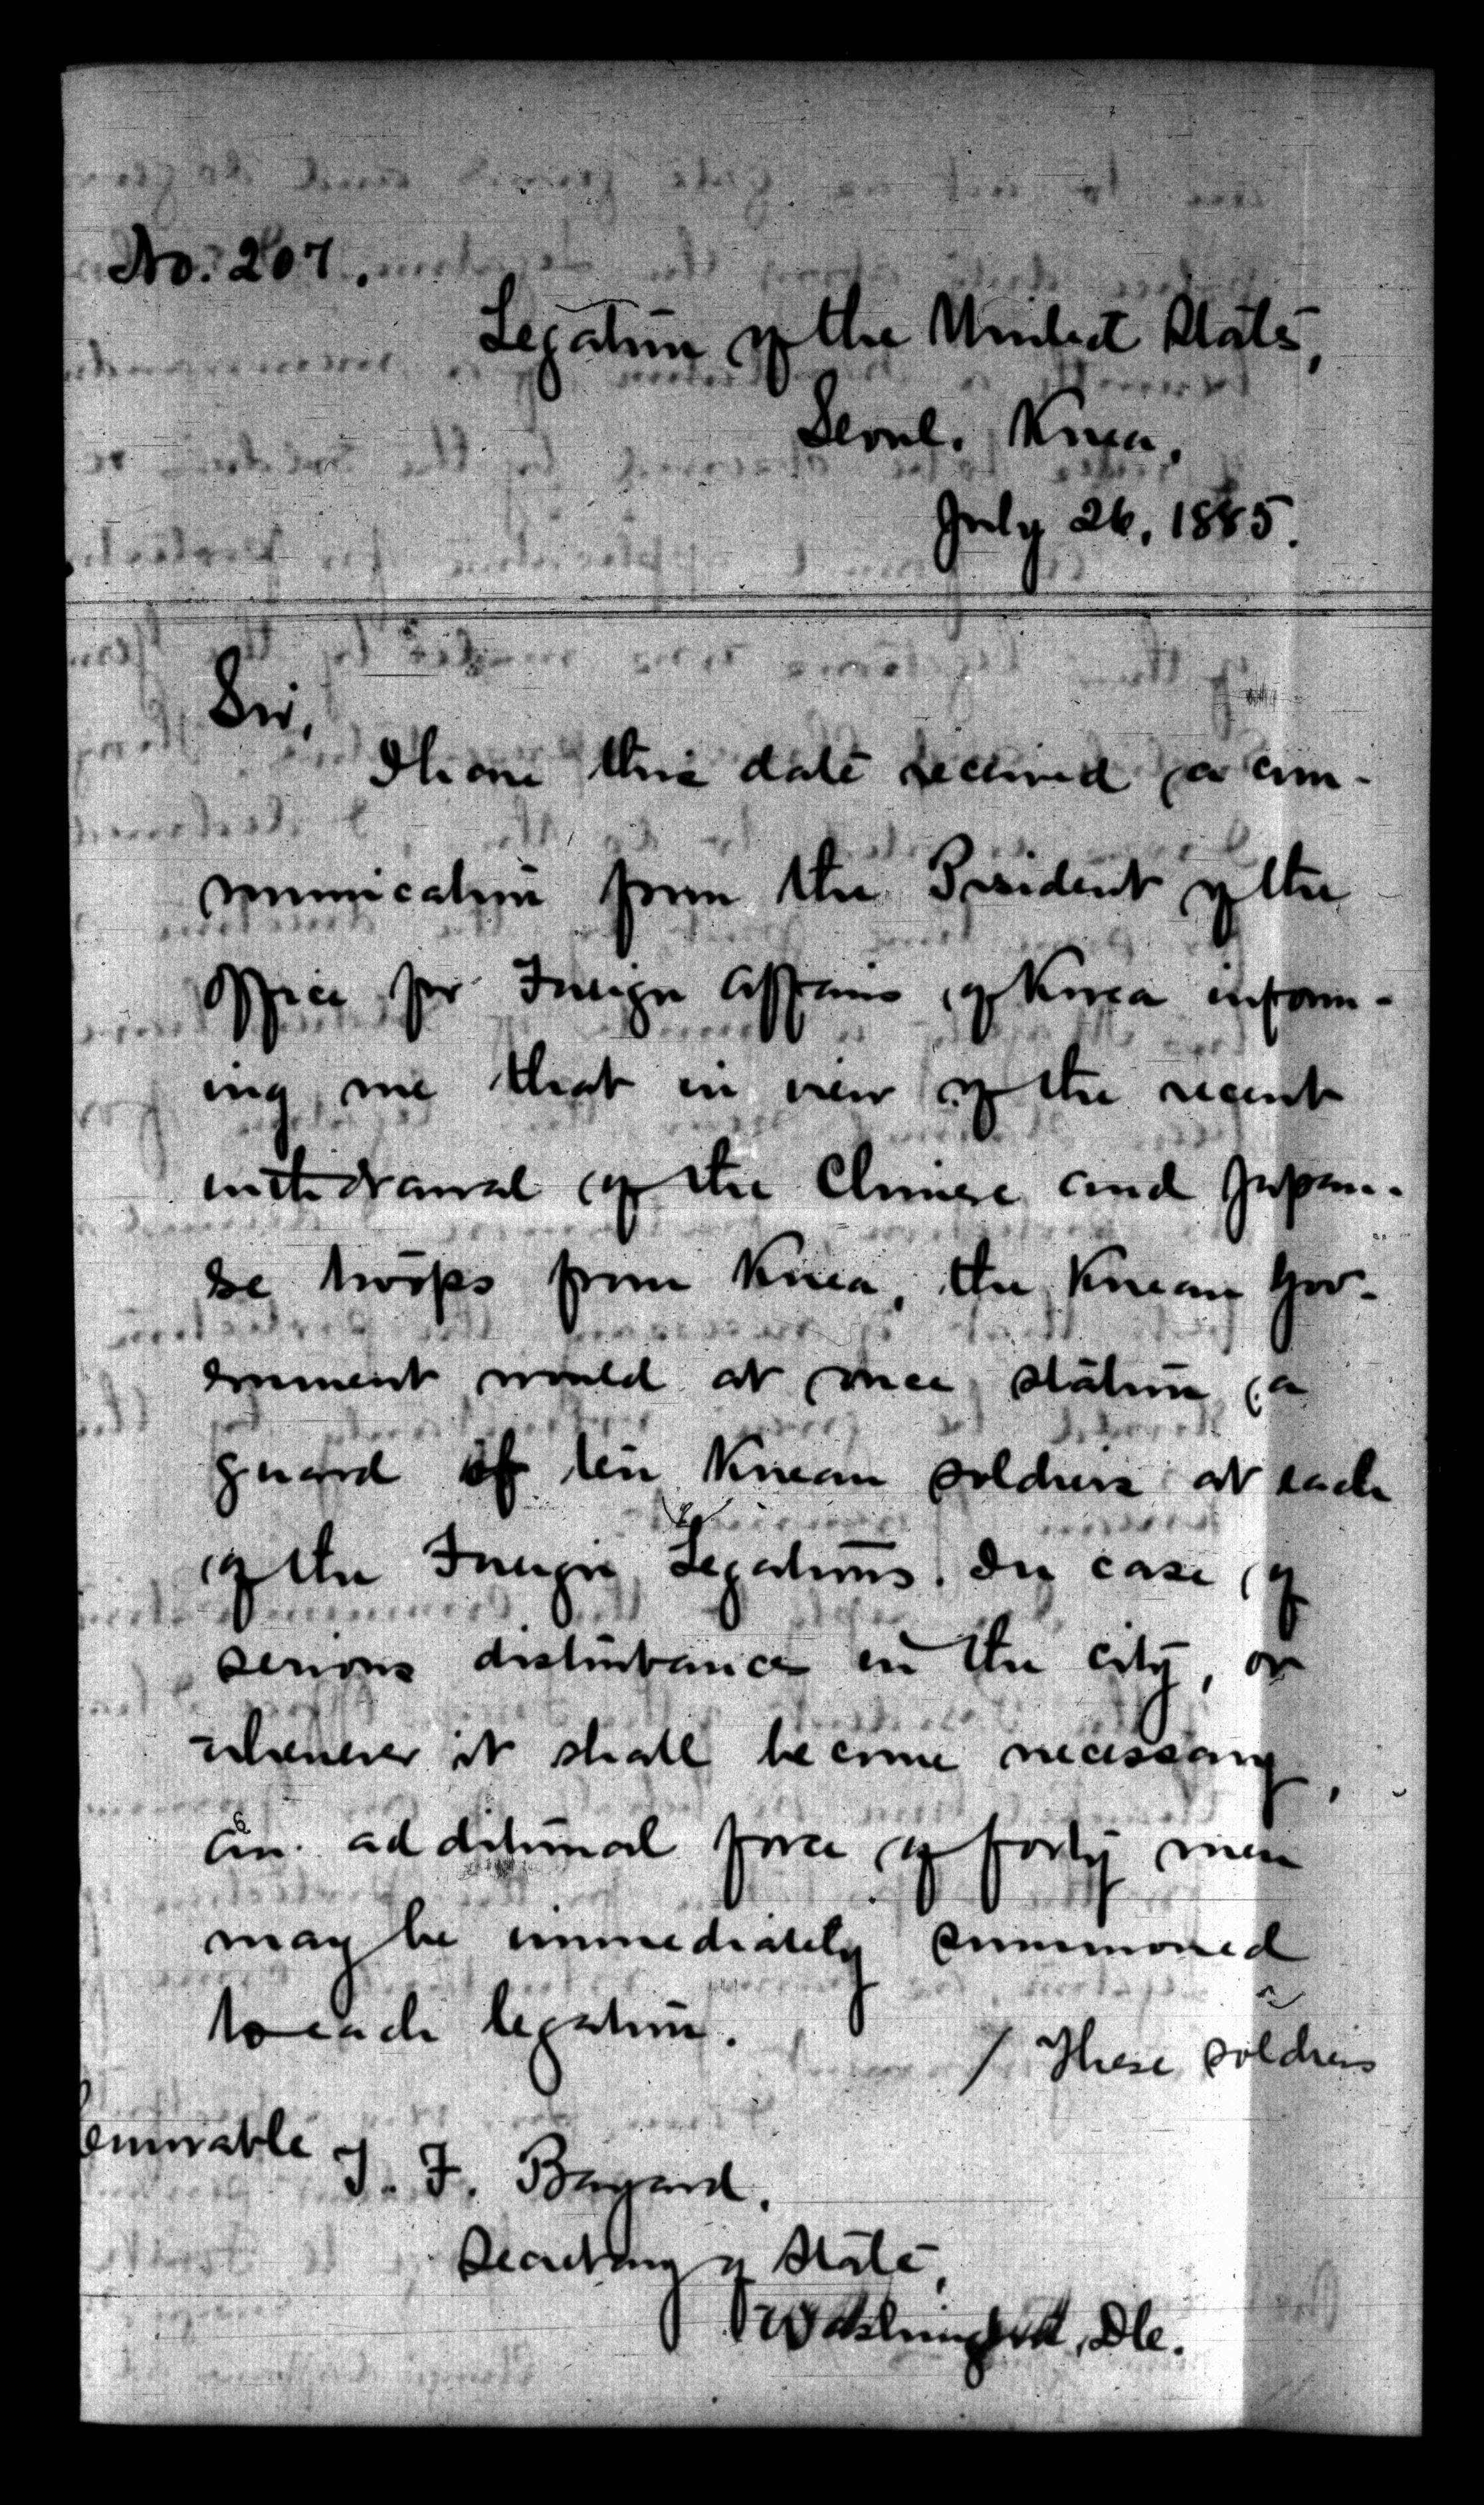 No. 207.
Legation of the United States,
Seoul, Korea,
July 26, 1885.
Sir,
I have this date received a com-
munication from the President of the
Office for Foreign Affairs of Korea inform-
ing me that in view of the recent
withdrawal of the Chinese and Japane-
se troops from Korea, the Korean Gov-
ernment would at once station a
guard of ten Korean soldiers at each
of the Foreign Legations. In case of
serious disturbance in the city, or
whenever it shall become necessary,
an additional force of forty men
may be immediately summoned
to each legation.
/ These soldiers
onorable T. F. Bayard,
Secretary of State,
Washington, D.C.